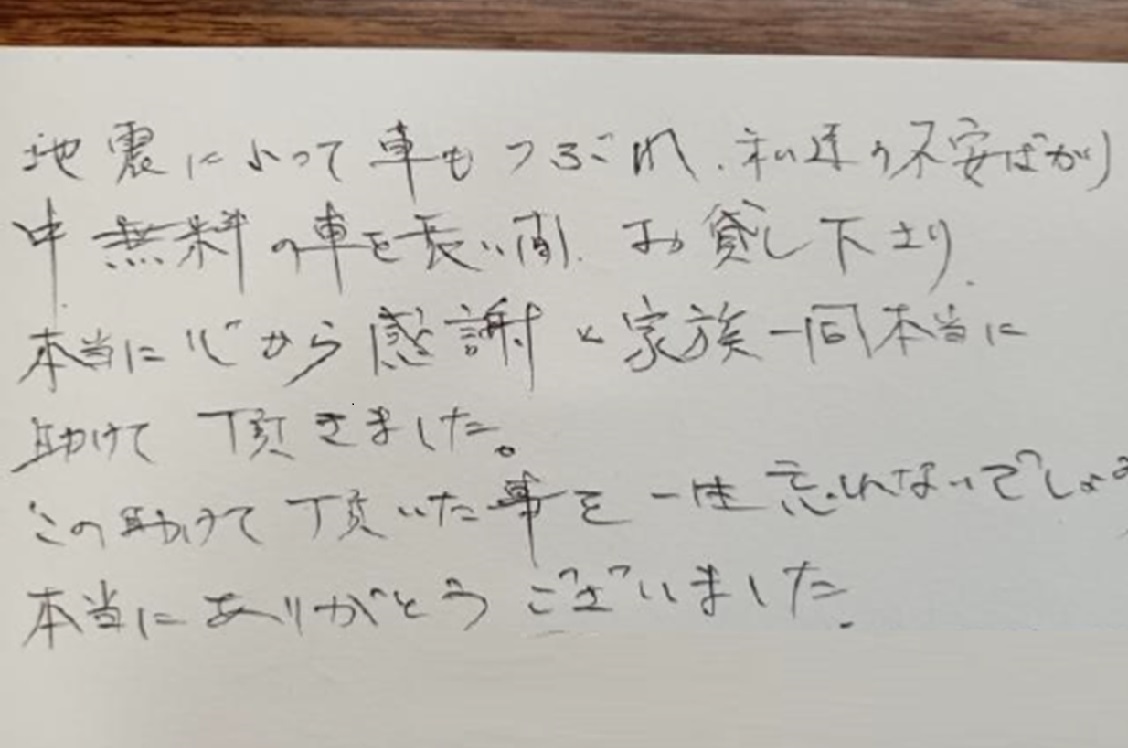 地震に よって 車も つぶれ、私達の不安ばかり
中 無料の車を長い間、お貸し下さり、
本当に心から感謝と家族一同本当に
助けて 頂きました。
この助けて頂いた事を一生忘れないでしょう
本当にありがとうございました.